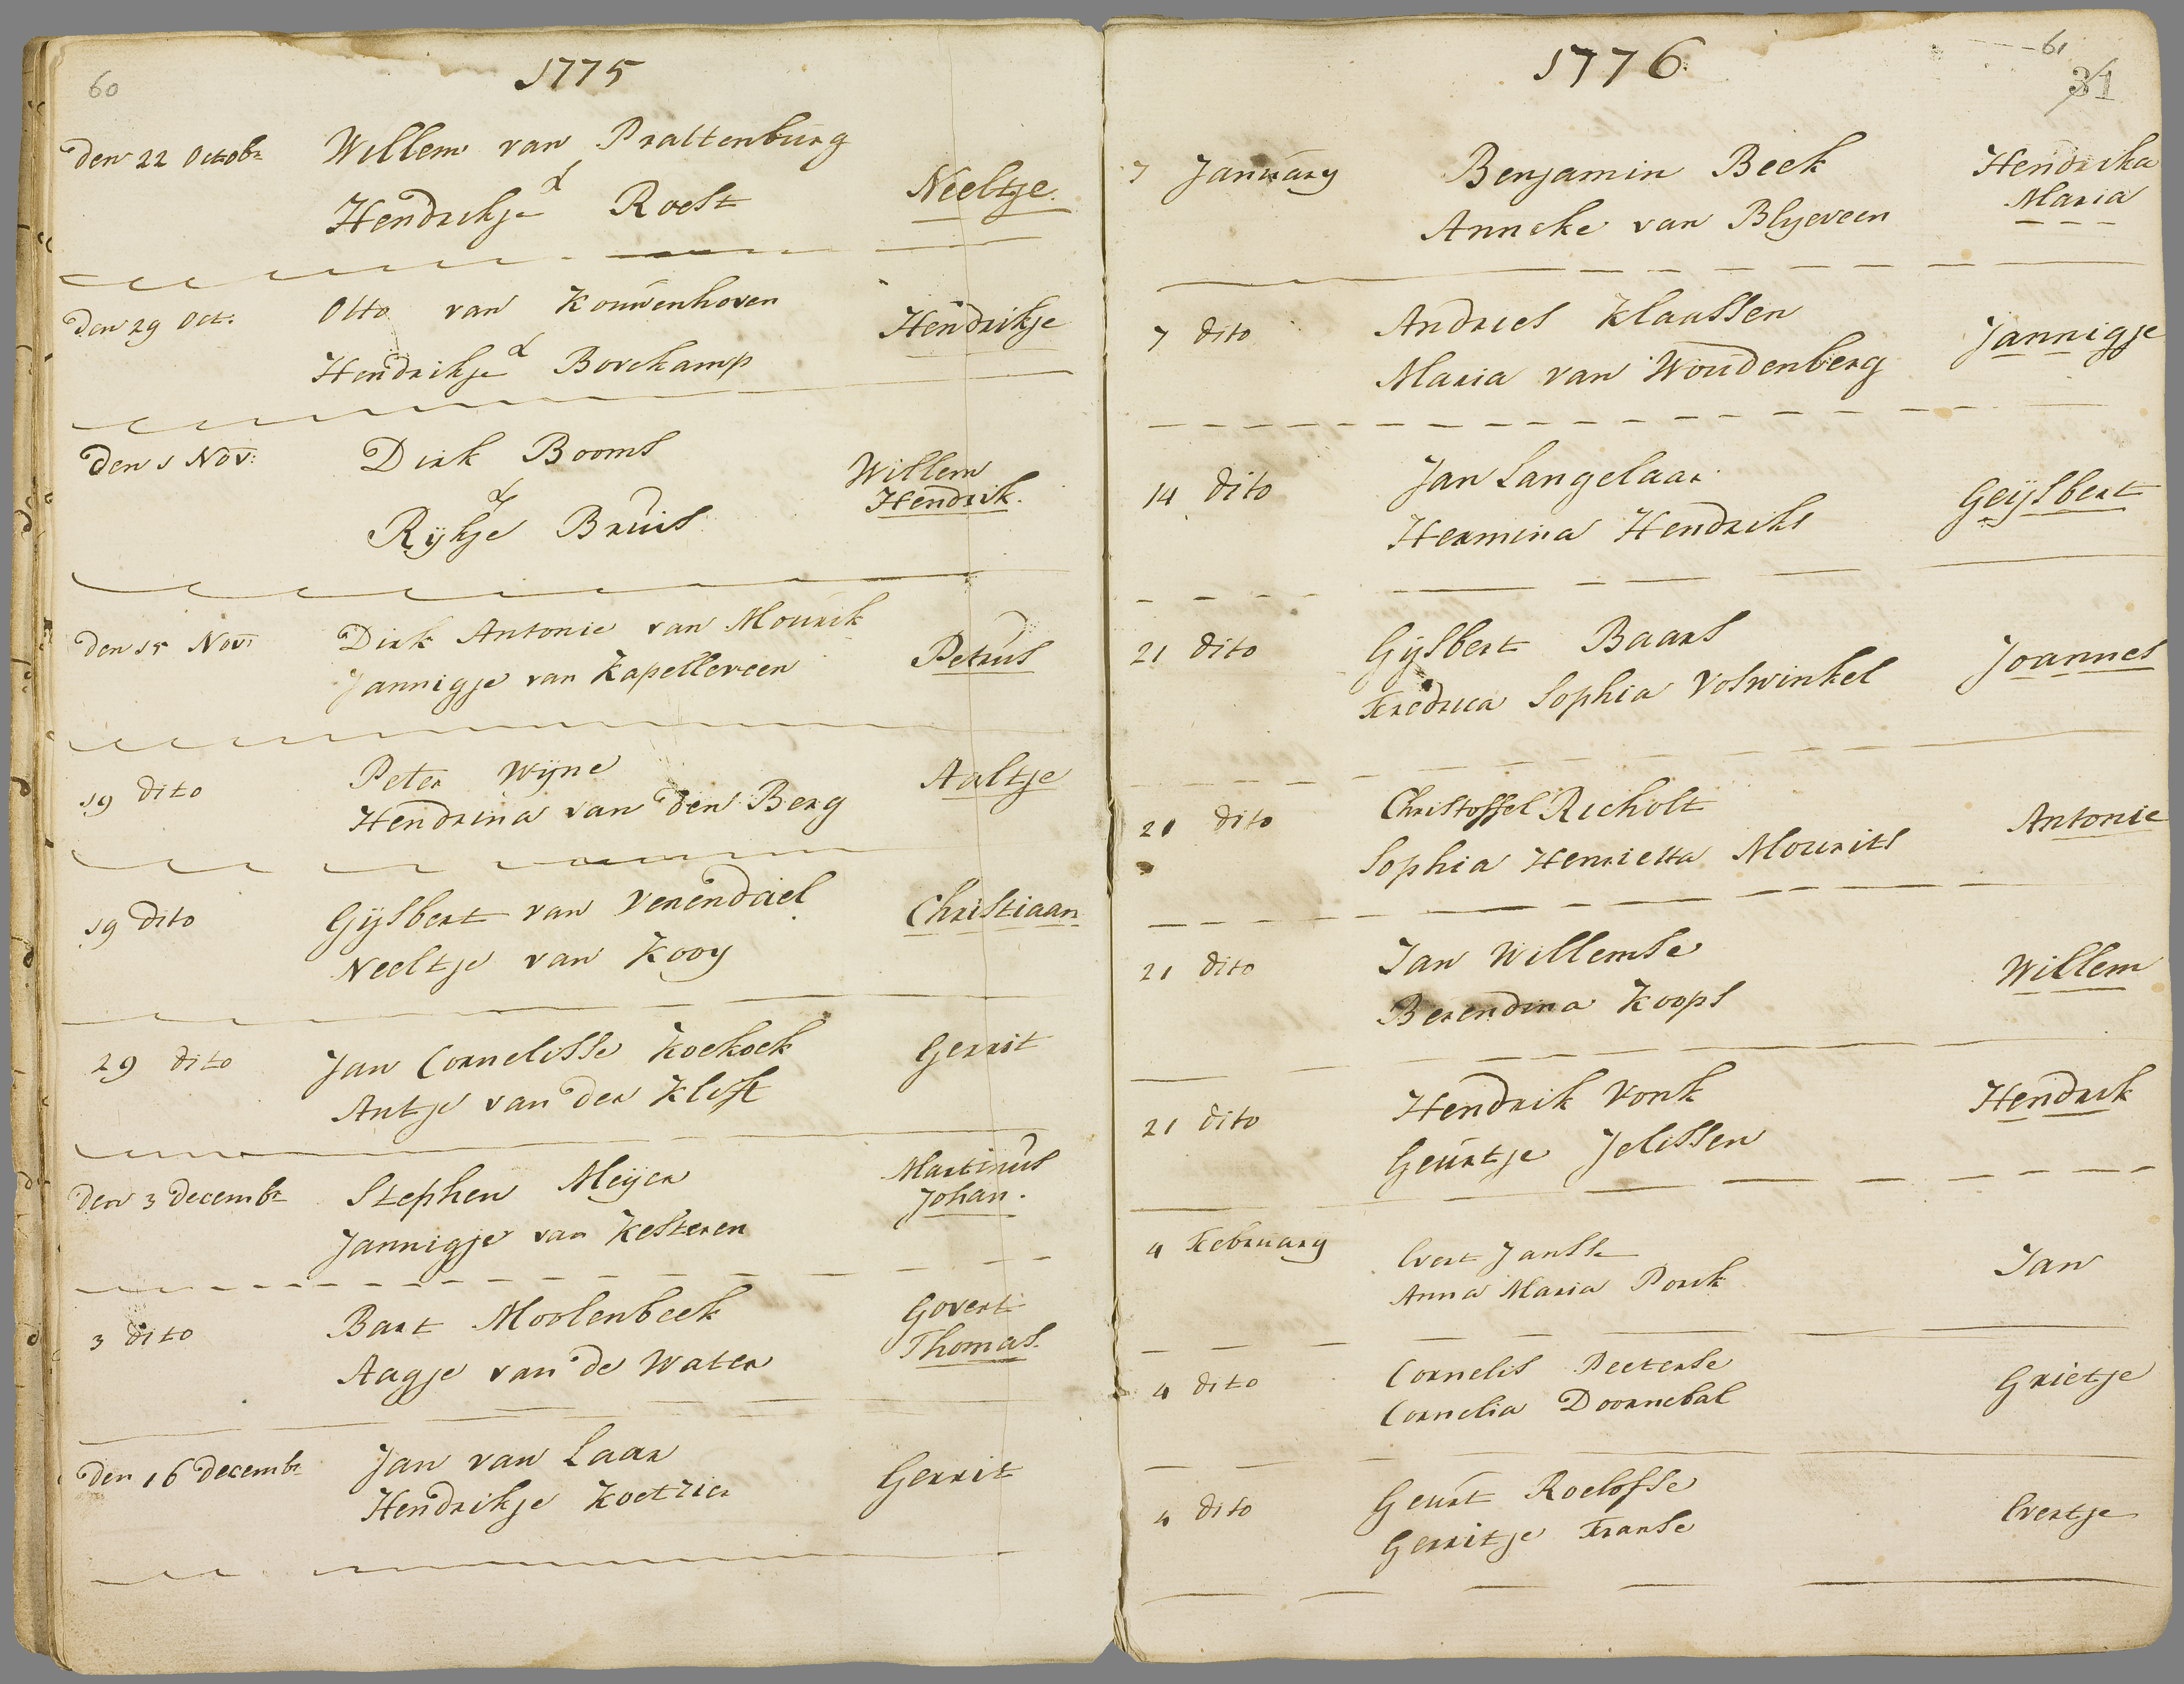 60
1775
Den 22 Octobr Willem van Prattenburg
&
Hendrikje Roest Neeltje.
Den 29 Oct: Otto van Kouwenhoven Hendrikje
&
Hendrikje Bovekamp
Den 1 Nov: Dirk Booms Willem
& Hendrik.
Rijkje Bruis
Den 15 Nov: Dirk Antonie van Mourik
Jannigje van Kapelleveen Petrus
19 Dito Peter Wijne Aaltje
Hendrina van Den Berg
19 Dito Gijsbert van Venendael Christiaan
Neeltje van Kooy
29 Dito Jan Cornelisse Koekoek Gerrit
Antje van Der Klift
Den 3 Decembr Stephen Meijer Martinus
Johan.
Jannigje van Kesteren
3 Dito Bart Moolenbeek Govert
Aagje van De Water Thomas.
Den 16 Decembr Jan van Laar Gerrit
Hendrikje Koetzier
61
31
1776.
7 January Benjamin Beek Hendrika
Anneke van Blijeveen Maria
7 Dito Andries Klaassen Jannigje
Maria van Woudenberg
14 Dito Jan Langelaar Geijsbert
Hermina Hendriks
21 Dito Gijsbert Baars Joannes
Fredrica Sophia Voswinkel
21 Dito Christoffel Richolt Antonie
Sophia Henrietta Mourits
21 Dito Jan Willemse Willem
Berendina Koops
21 Dito Hendrik Vonk Hendrik
Geurtje Jelissen
4 February Evert Janssе Jan
Anna Maria Porck
4 Dito Cornelis Peeterse Grietje
Cornelia Doornebal
4 Dito Geurt Roelofse Evertje
Gerritje Franse